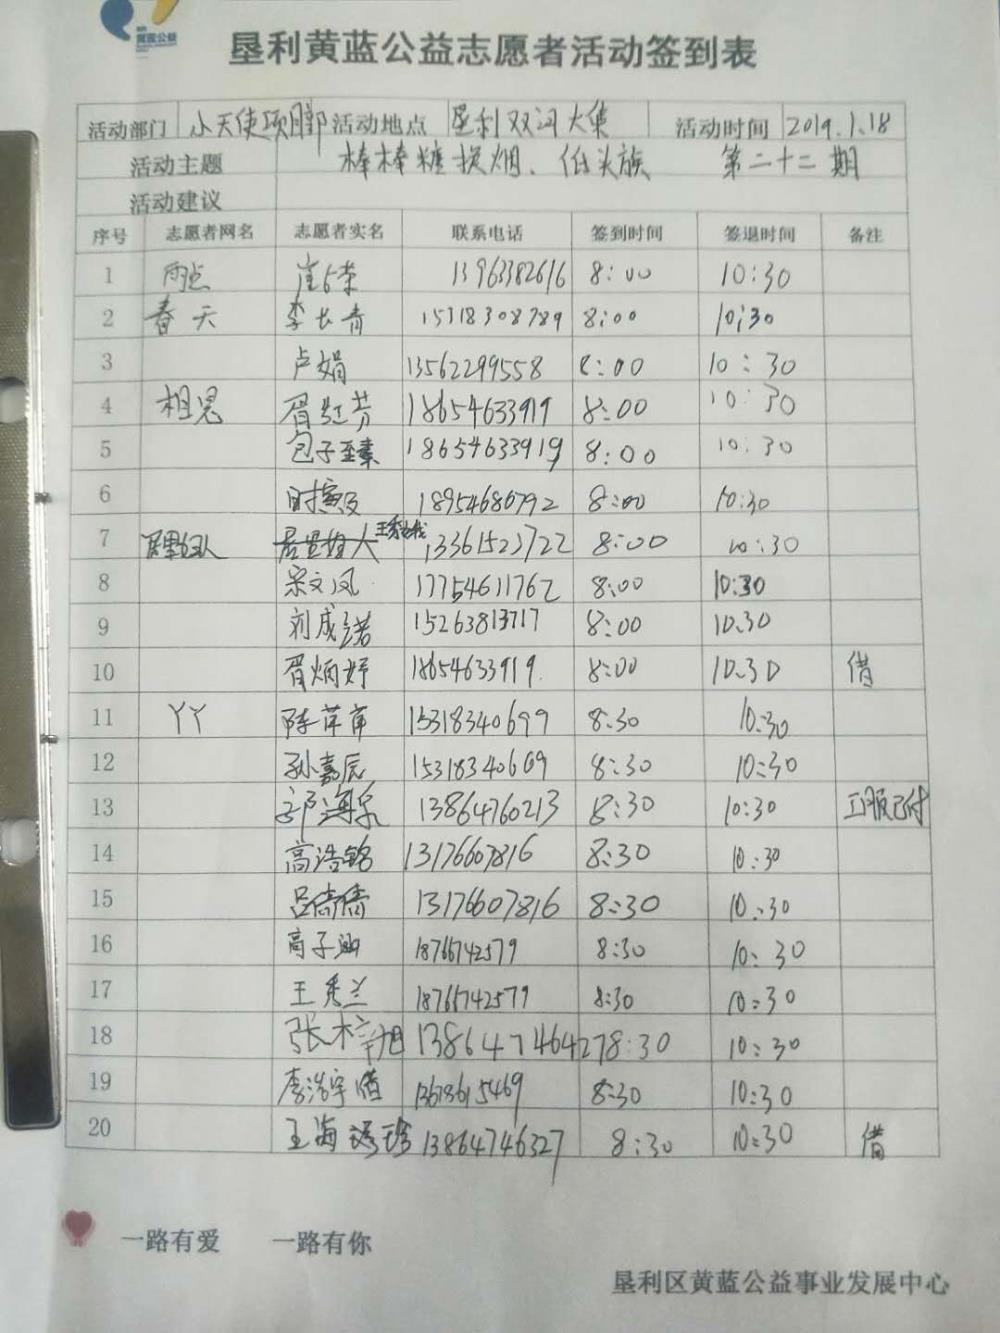 黄蓝公益
垦利黄蓝公益志愿者活动签到表
活动部门 小天使项目部 活动地点 垦利双河大集 活动时间 2019.1.18
活动主题 棒棒糖换烟、低头族 第二十二期
活动建议
序号 志愿者网名 志愿者实名 联系电话 签到时间 签退时间 备注
1 雨点 13963382616 8:00 10:30
2 春天 李长青 15318308789 8:00 10:30
3 卢娟 13562299558 8:00 10:30
4 相思 胥红芳 18654633919 8:00 10:30
5 包子至臻 18654633919 8:00 10:30
6 18954686792 8:00 10:30
7 13361523722 8:00 10:30
8 宋文凤 17754611762 8:00 10:30
9 刘成诺 15263813717 8:00 10.30
10 胥炳妤 18654633919 8:00 10.30 借
11 丫丫 陈萍萍 15318340699 8:30 10:30
12 孙嘉辰 15318340669 8:30 10:30
13 郭海泉 13864760213 8:30 10:30
14 高浩铭 13176607816 8:30 10:30
15 吕倩倩 13176607816 8:30 10:30
16 高子涵 18766742579 8:30 10:30
17 王秀兰 18766742579 8:30 10:30
18 张梓旭 13864746427 8:30 10:30
19 李浩宇 借 13618615469 8:30 10:30
20 王海 13864746327 8:30 10:30 借
一路有爱 一路有你
垦利区黄蓝公益事业发展中心